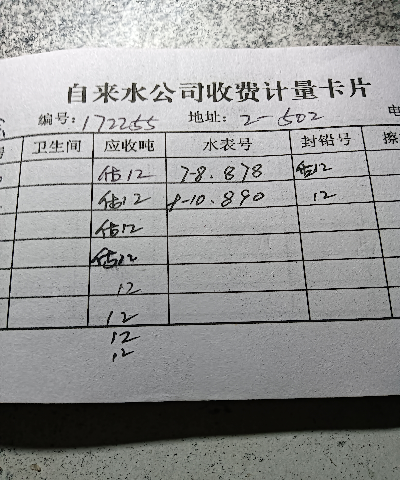 自来水公司收费计量卡片
编号:172255 地址:2-502 电
卫生间 应收吨 水表号 封铅号 擦
估12 7-8.878 估12
估12 8-10.890 12
估12
估12
12
12
12
12